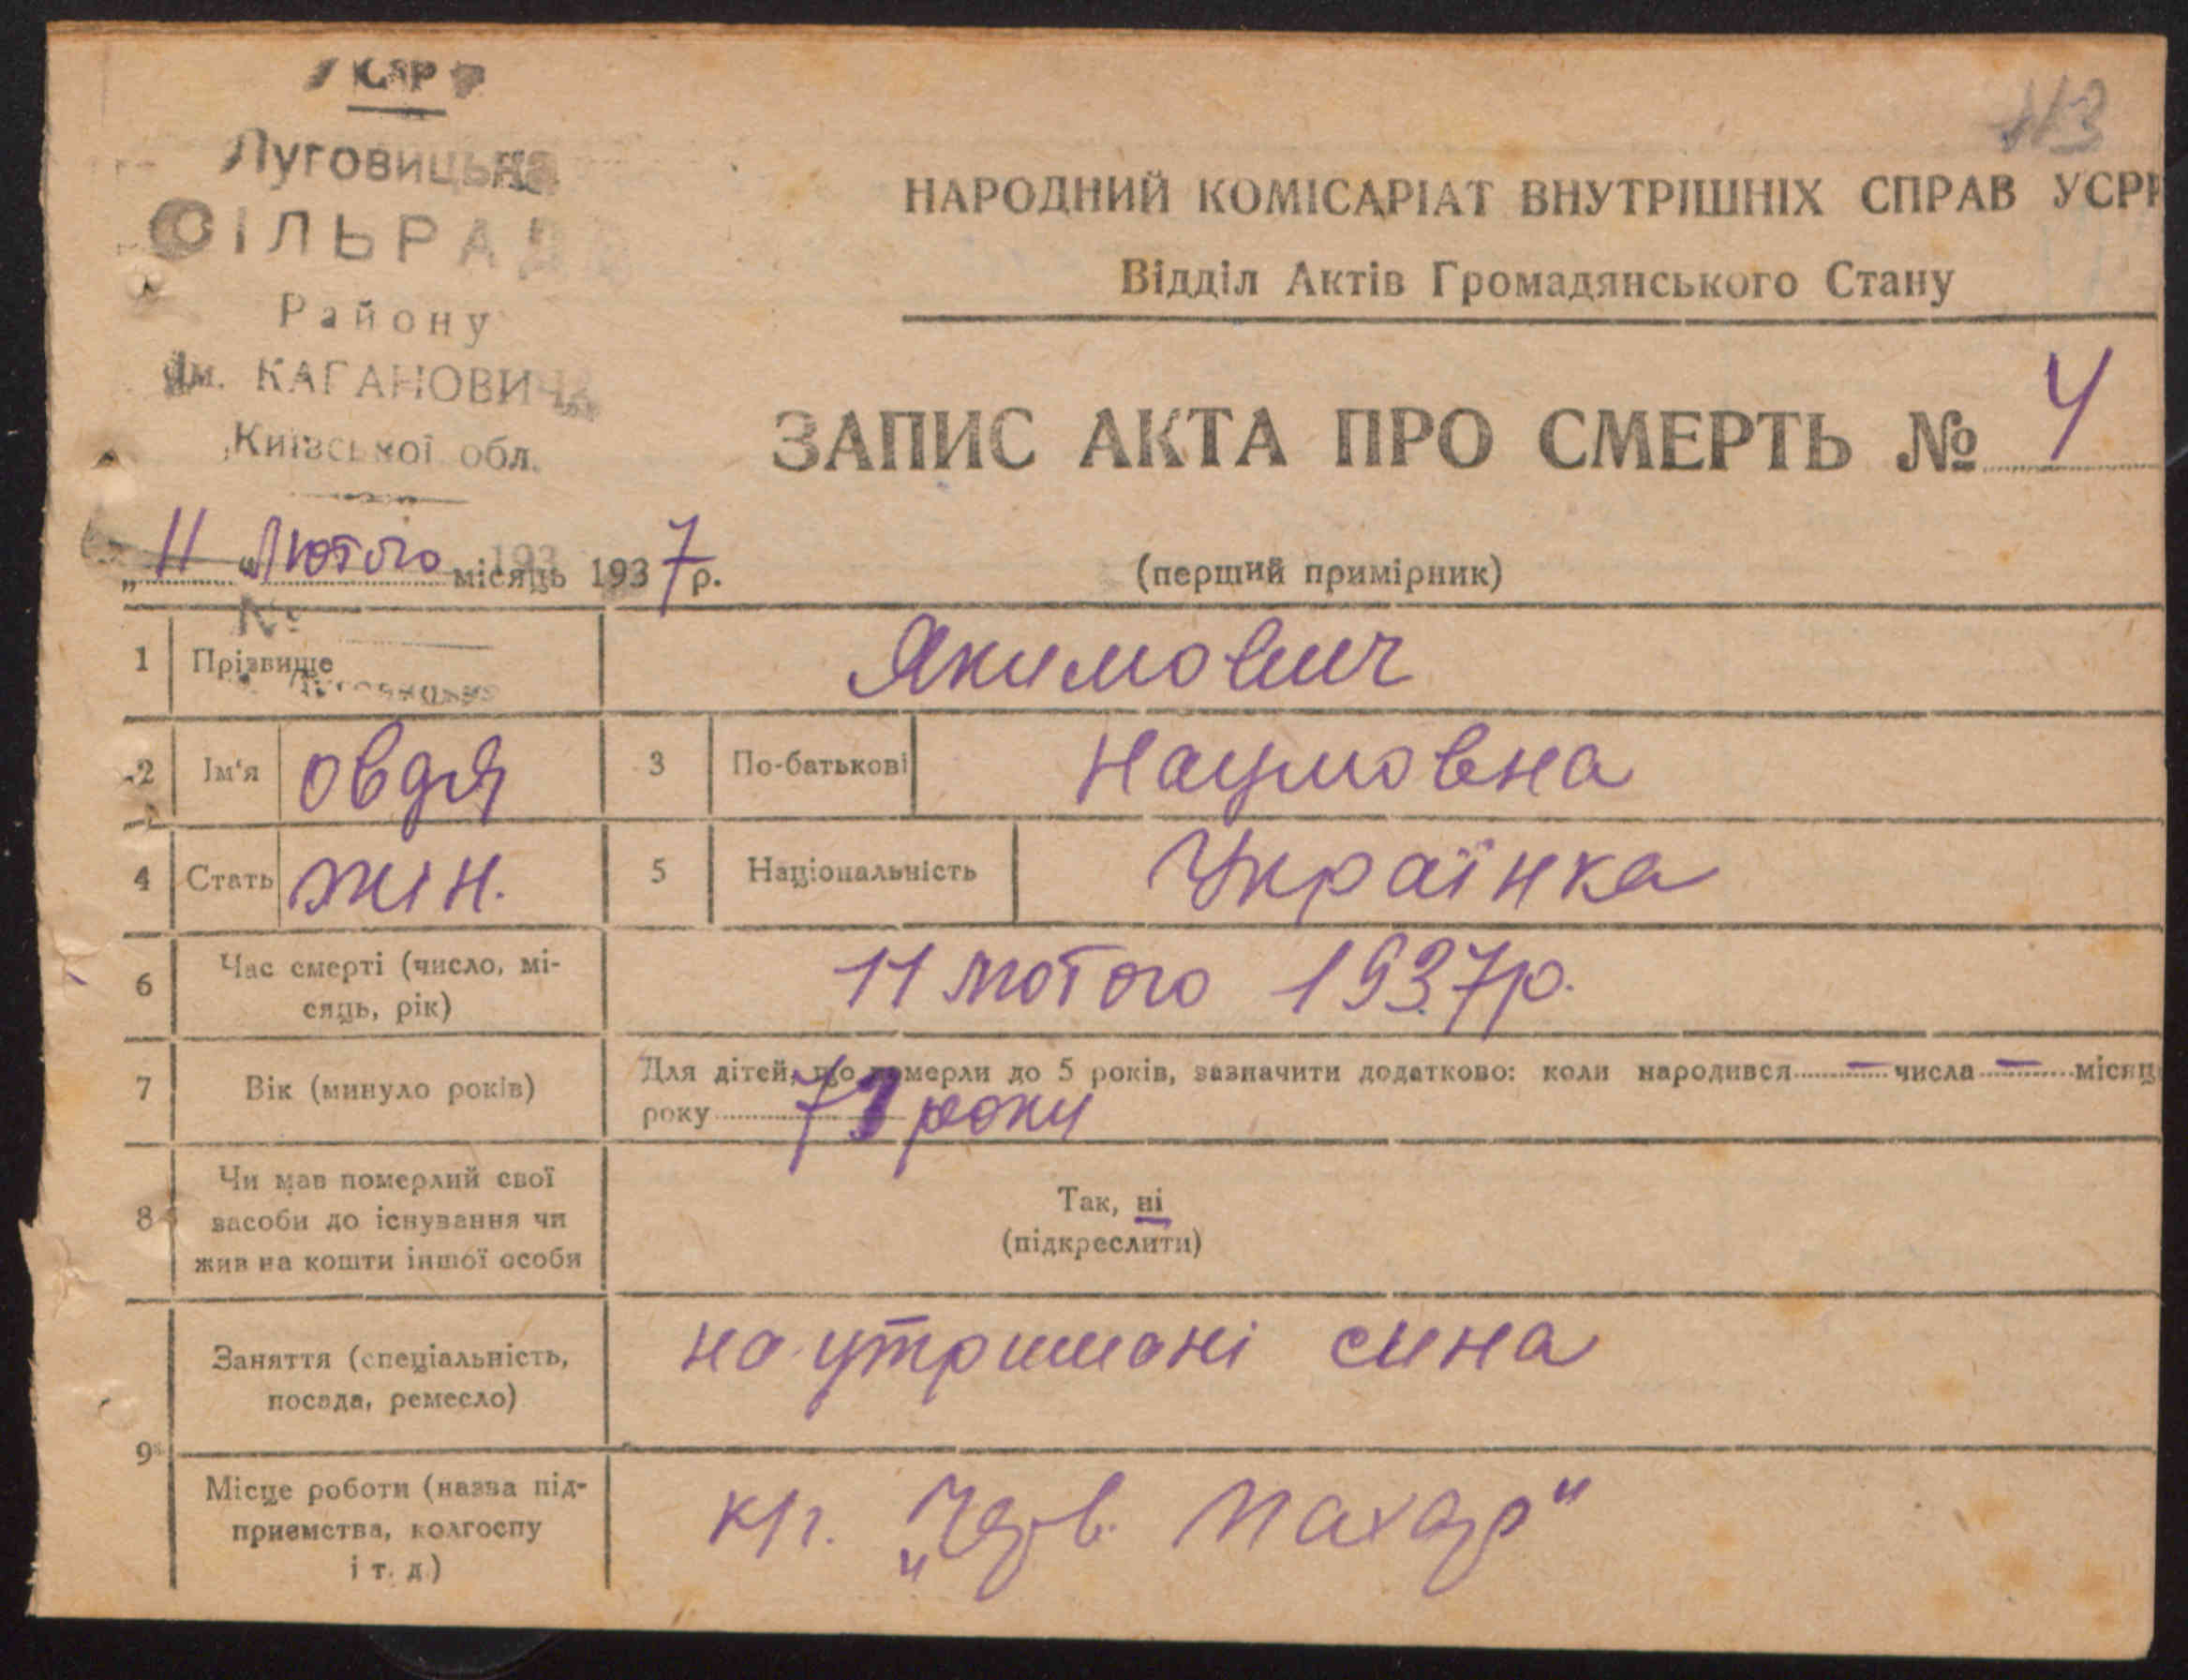 УСРР
Луговицька
СІЛЬРАДА
Району
Ім. КАГАНОВИЧА
Київської обл.
113
НАРОДНИЙ КОМІСАРІАТ ВНУТРІШНІХ СПРАВ УСРР
Відділ Актів Громадянського Стану
ЗАПИС АКТА ПРО СМЕРТЬ № 4
„11“ Лютого місяць 1937 р.
193
(перший примірник)
№
1 Прізвище Якимович
2 Ім'я Овдя 3 По-батькові Наумовна
4 Стать жін. 5 Національність Українка
6 Час смерті (число, мі-
сяць, рік) 11 лютого 1937р.
7 Вік (минуло років) Для дітей, що померли до 5 років, зазначити додатково: коли народився — числа — місяц
року 73 роки
8 Чи мав померлий свої
засоби до існування чи
жив на кошти іншої особи
Так, ні
(підкреслити)
9 Заняття (спеціальність,
посада, ремесло) на утримані сина
Місце роботи (назва під-
приємства, колгоспу
і т. д.) к/г. „Черв. Пахар“